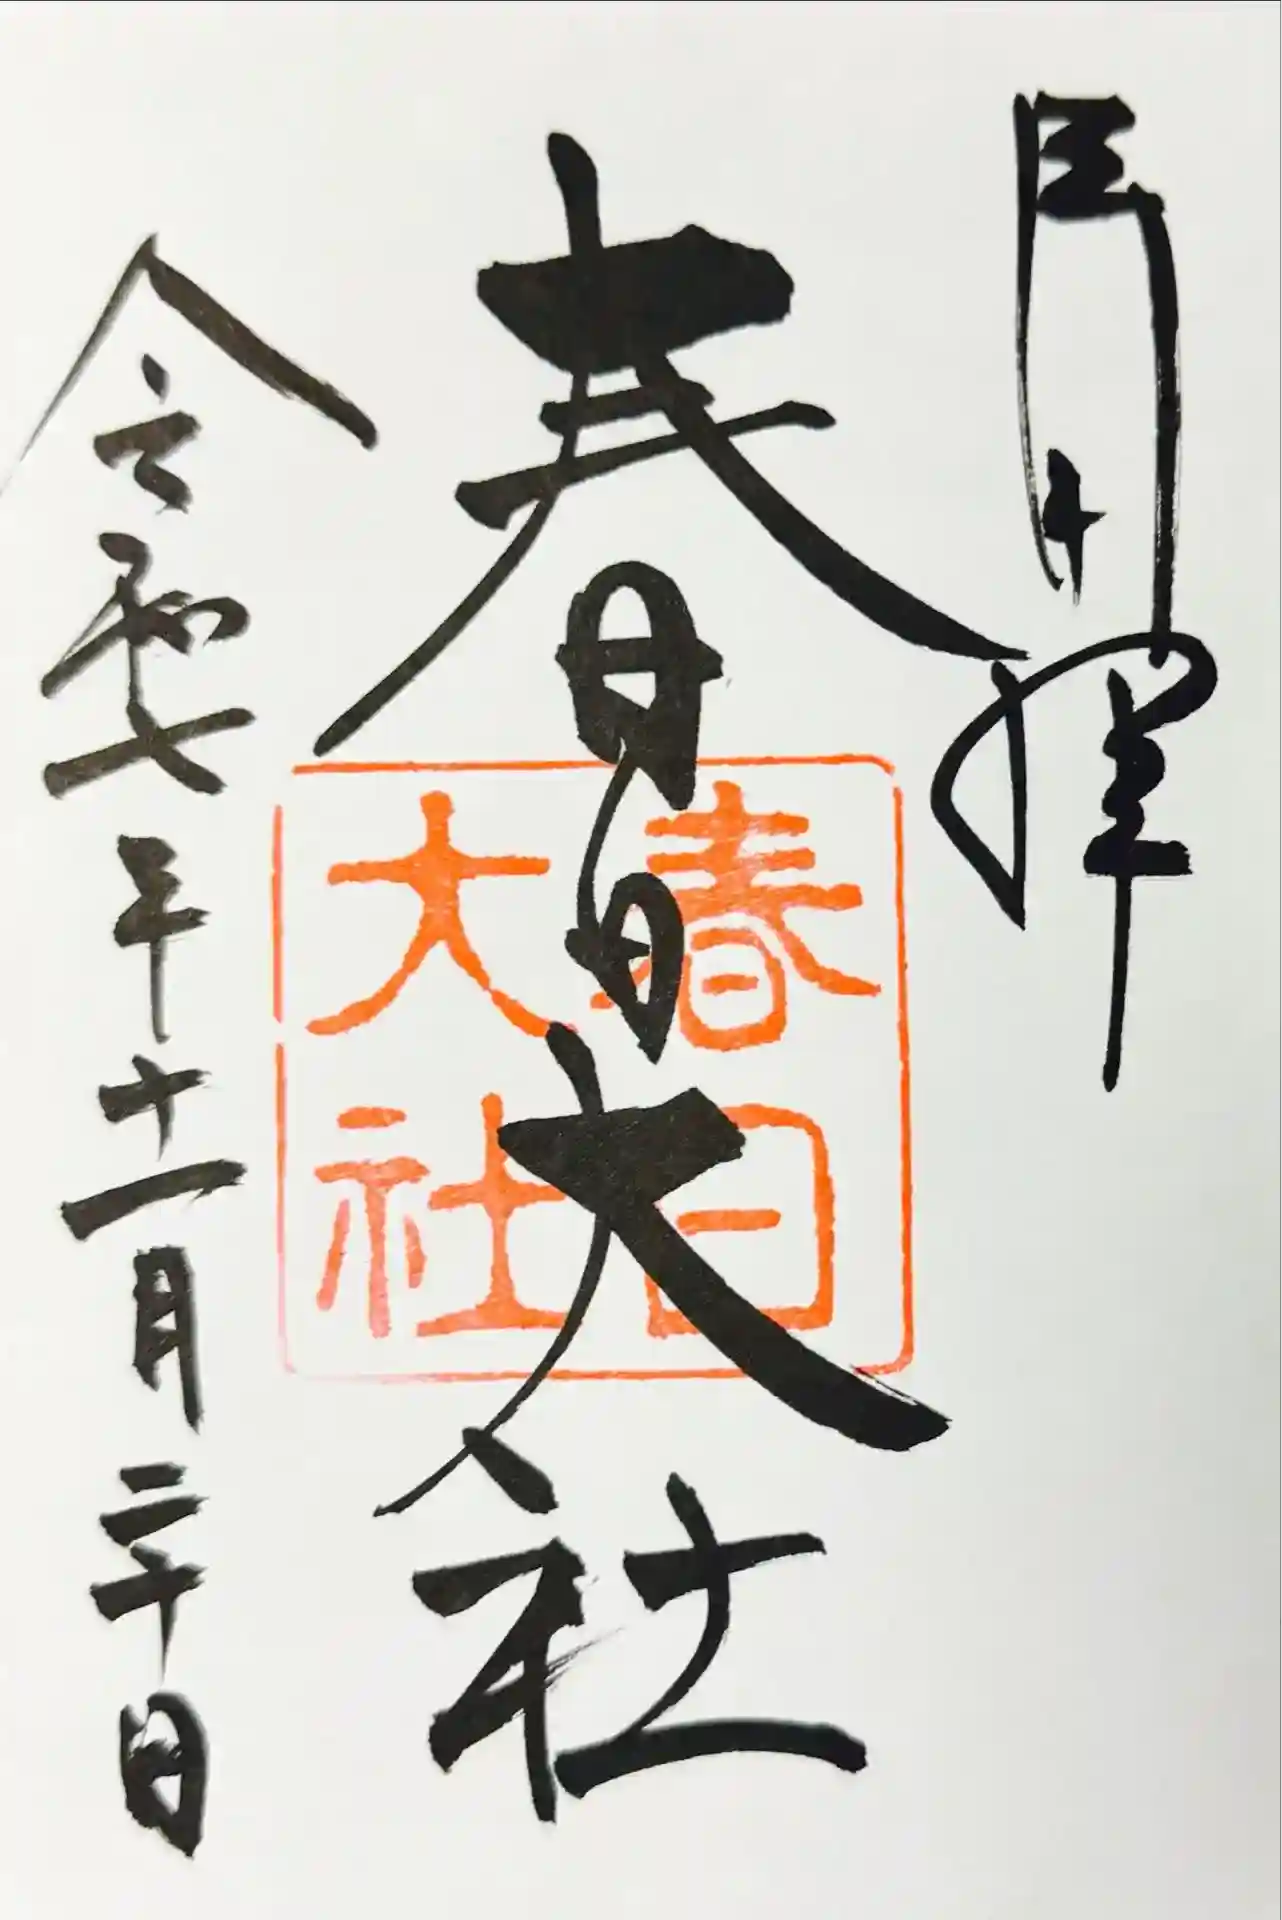 春日大社
令和七年十一月二十日
春日
大社